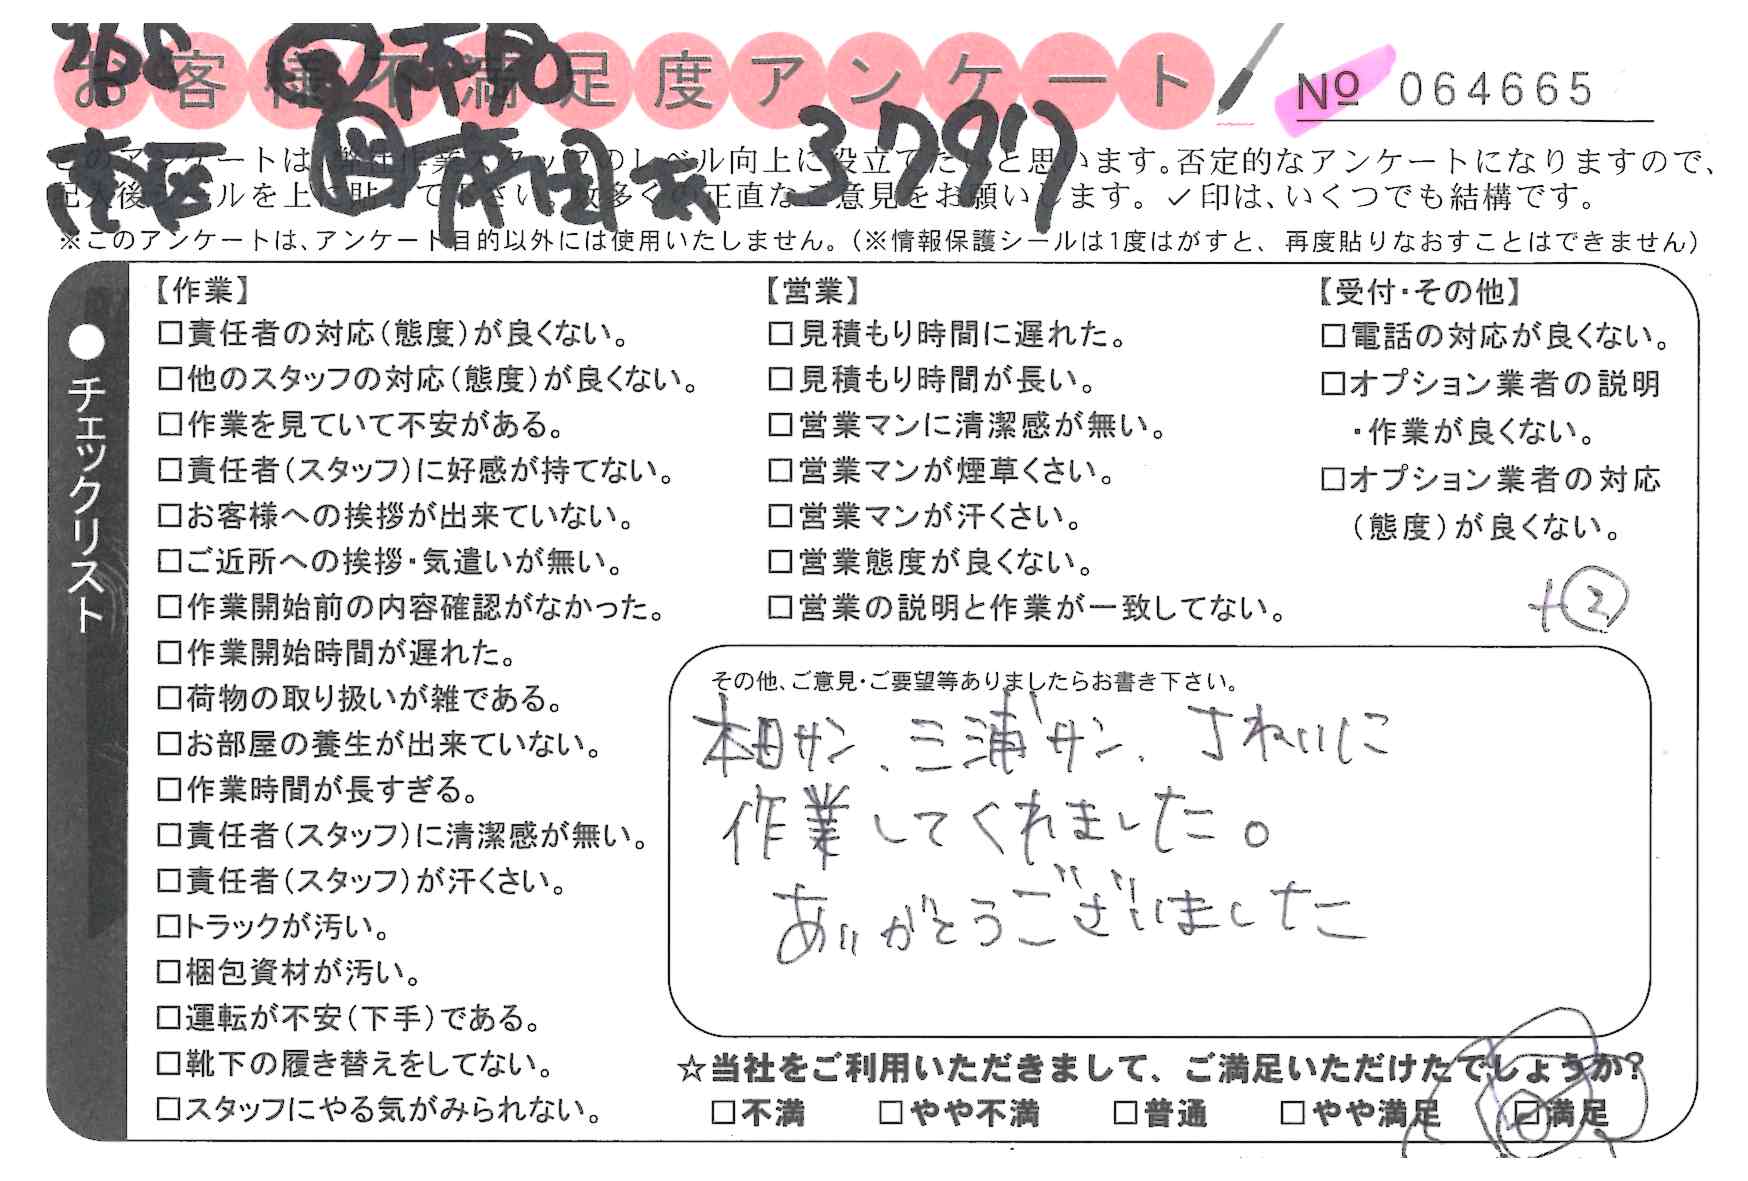 お客様不満足度アンケート
№ 064665
268
3797
このアンケートは、弊社作業スタッフのレベル向上に役立てたいと思います。否定的なアンケートになりますので、
記入後シールを上に貼って下さい。数多くの正直なご意見をお願いします。✓印は、いくつでも結構です。
※このアンケートは、アンケート目的以外には使用いたしません。(※情報保護シールは1度はがすと、再度貼りなおすことはできません)
●チェックリスト
【作業】
□責任者の対応(態度)が良くない。
□他のスタッフの対応(態度)が良くない。
□作業を見ていて不安がある。
□責任者(スタッフ)に好感が持てない。
□お客様への挨拶が出来ていない。
□ご近所への挨拶・気遣いが無い。
□作業開始前の内容確認がなかった。
□作業開始時間が遅れた。
□荷物の取り扱いが雑である。
□お部屋の養生が出来ていない。
□作業時間が長すぎる。
□責任者(スタッフ)に清潔感が無い。
□責任者(スタッフ)が汗くさい。
□トラックが汚い。
□梱包資材が汚い。
□運転が不安(下手)である。
□靴下の履き替えをしてない。
□スタッフにやる気がみられない。
【営業】
□見積もり時間に遅れた。
□見積もり時間が長い。
□営業マンに清潔感が無い。
□営業マンが煙草くさい。
□営業マンが汗くさい。
□営業態度が良くない。
□営業の説明と作業が一致してない。
【受付・その他】
□電話の対応が良くない。
□オプション業者の説明
・作業が良くない。
□オプション業者の対応
(態度)が良くない。
+②
その他、ご意見・ご要望等ありましたらお書き下さい。
本田サン、三浦サン、きれいに
作業してくれました。
ありがとうございました
☆当社をご利用いただきまして、ご満足いただけたでしょうか?
□不満 □やや不満 □普通 □やや満足 □満足